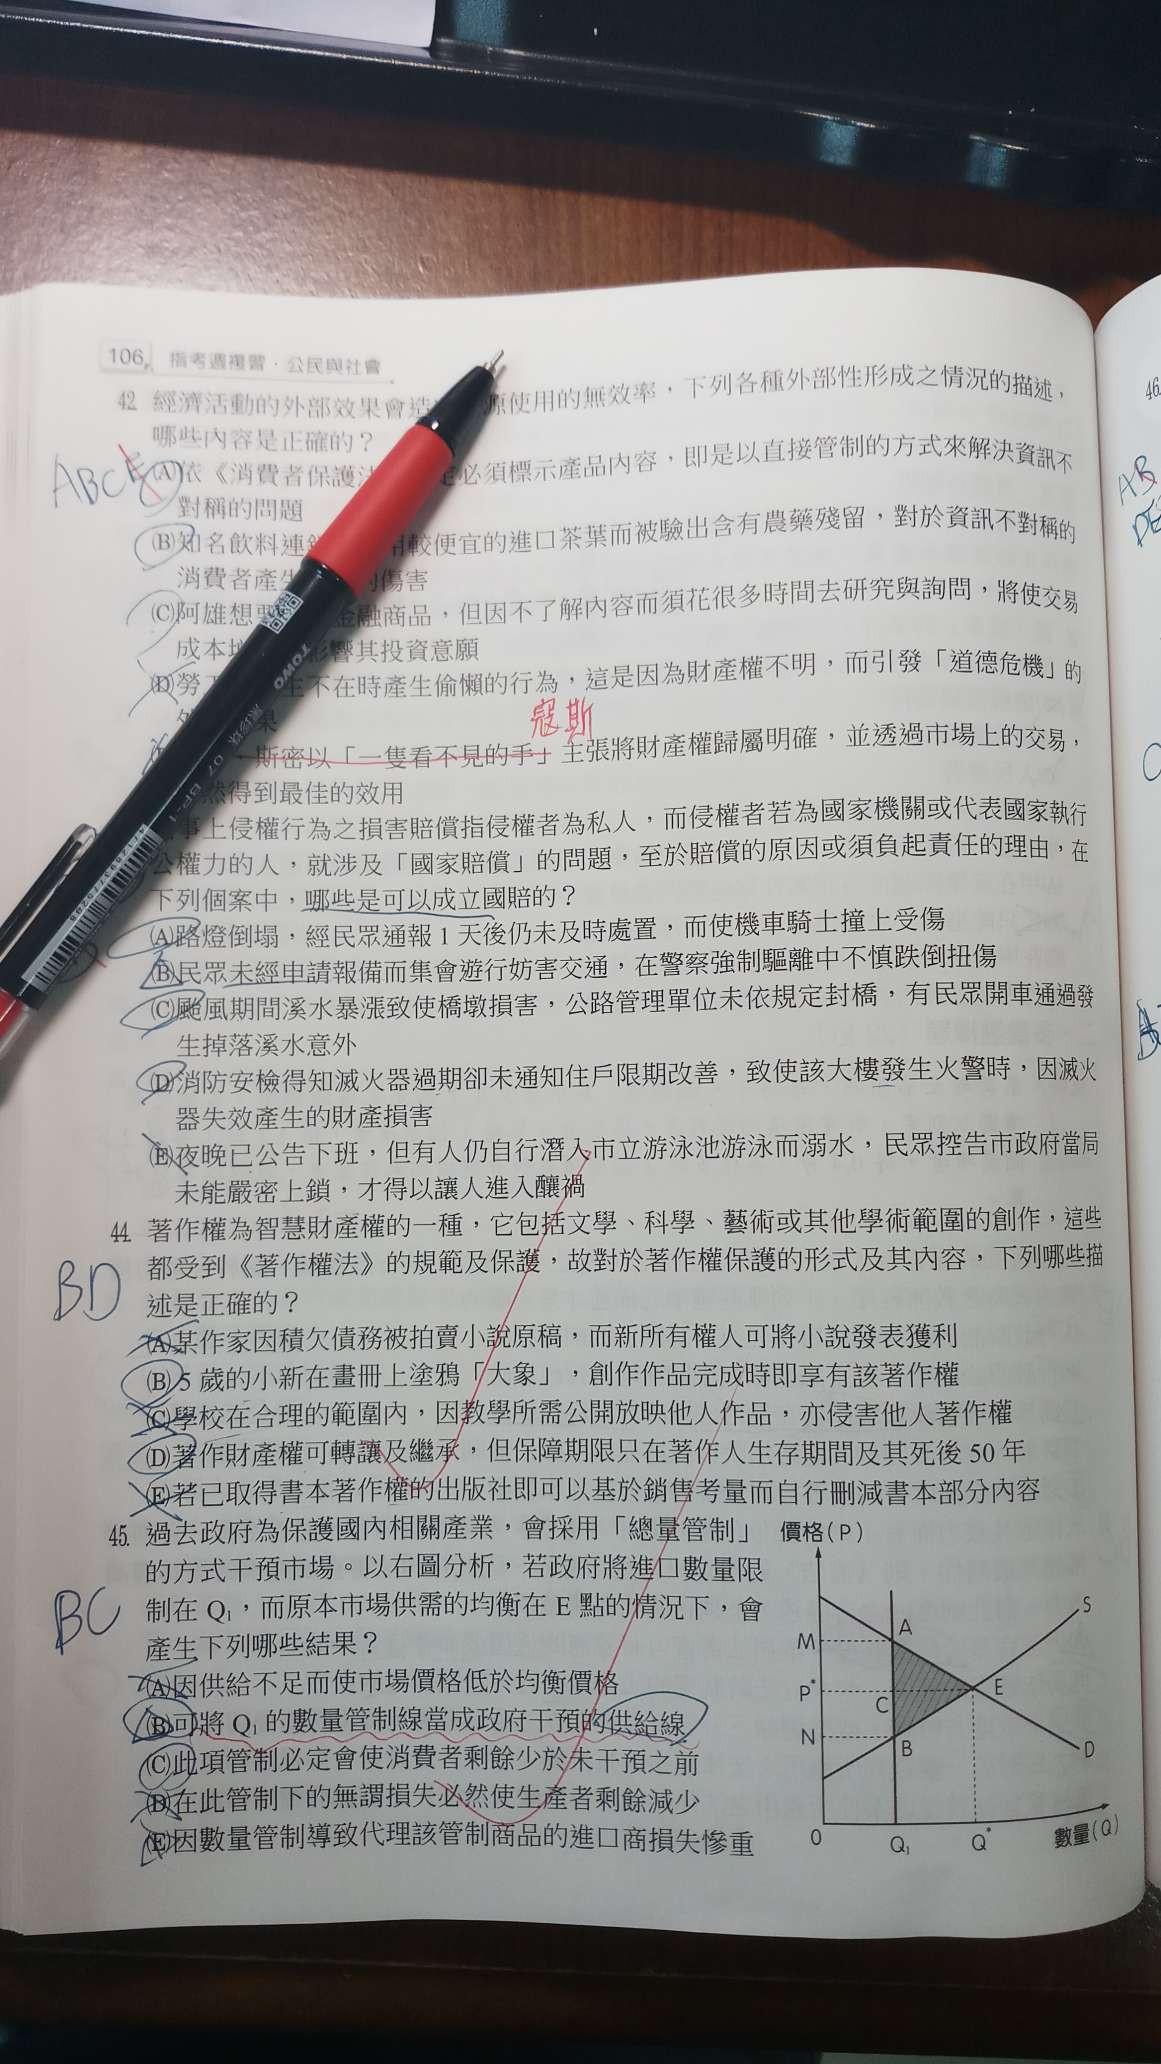 106 指考週複習·公民與社會
42. 經濟活動的外部效果會造 源使用的無效率，下列各種外部性形成之情況的描述，
哪些內容是正確的？
ABCE
(A)依《消費者保護法 定必須標示產品內容，即是以直接管制的方式來解決資訊不
對稱的問題
(B)知名飲料連 用較便宜的進口茶葉而被驗出含有農藥殘留，對於資訊不對稱的
消費者產生 的傷害
(C)阿雄想要 金融商品，但因不了解內容而須花很多時間去研究與詢問，將使交易
成本增 影響其投資意願
(D)勞 生不在時產生偷懶的行為，這是因為財產權不明，而引發「道德危機」的
果
寇斯
斯密以「一隻看不見的手」主張將財產權歸屬明確，並透過市場上的交易，
然得到最佳的效用
事上侵權行為之損害賠償指侵權者為私人，而侵權者若為國家機關或代表國家執行
公權力的人，就涉及「國家賠償」的問題，至於賠償的原因或須負起責任的理由，在
下列個案中，哪些是可以成立國賠的？
(A)路燈倒塌，經民眾通報 1 天後仍未及時處置，而使機車騎士撞上受傷
(B)民眾未經申請報備而集會遊行妨害交通，在警察強制驅離中不慎跌倒扭傷
(C)颱風期間溪水暴漲致使橋墩損害，公路管理單位未依規定封橋，有民眾開車通過發
生掉落溪水意外
(D)消防安檢得知滅火器過期卻未通知住戶限期改善，致使該大樓發生火警時，因滅火
器失效產生的財產損害
(E)夜晚已公告下班，但有人仍自行潛入市立游泳池游泳而溺水，民眾控告市政府當局
未能嚴密上鎖，才得以讓人進入釀禍
44. 著作權為智慧財產權的一種，它包括文學、科學、藝術或其他學術範圍的創作，這些
都受到《著作權法》的規範及保護，故對於著作權保護的形式及其內容，下列哪些描
述是正確的？
BD
(A)某作家因積欠債務被拍賣小說原稿，而新所有權人可將小說發表獲利
(B) 5 歲的小新在畫冊上塗鴉「大象」，創作作品完成時即享有該著作權
(C)學校在合理的範圍內，因教學所需公開放映他人作品，亦侵害他人著作權
(D)著作財產權可轉讓及繼承，但保障期限只在著作人生存期間及其死後 50 年
(E)若已取得書本著作權的出版社即可以基於銷售考量而自行刪減書本部分內容
45. 過去政府為保護國內相關產業，會採用「總量管制」
的方式干預市場。以右圖分析，若政府將進口數量限
制在 Q₁，而原本市場供需的均衡在 E 點的情況下，會
產生下列哪些結果？
BC
(A)因供給不足而使市場價格低於均衡價格
(B)可將 Q₁ 的數量管制線當成政府干預的供給線
(C)此項管制必定會使消費者剩餘少於未干預之前
(D)在此管制下的無謂損失必然使生產者剩餘減少
(E)因數量管制導致代理該管制商品的進口商損失慘重
價格(P)
S
A
M
P* E
C
N
B D
0 Q₁ Q* 數量(Q)
46.
AB
DE
TOWO